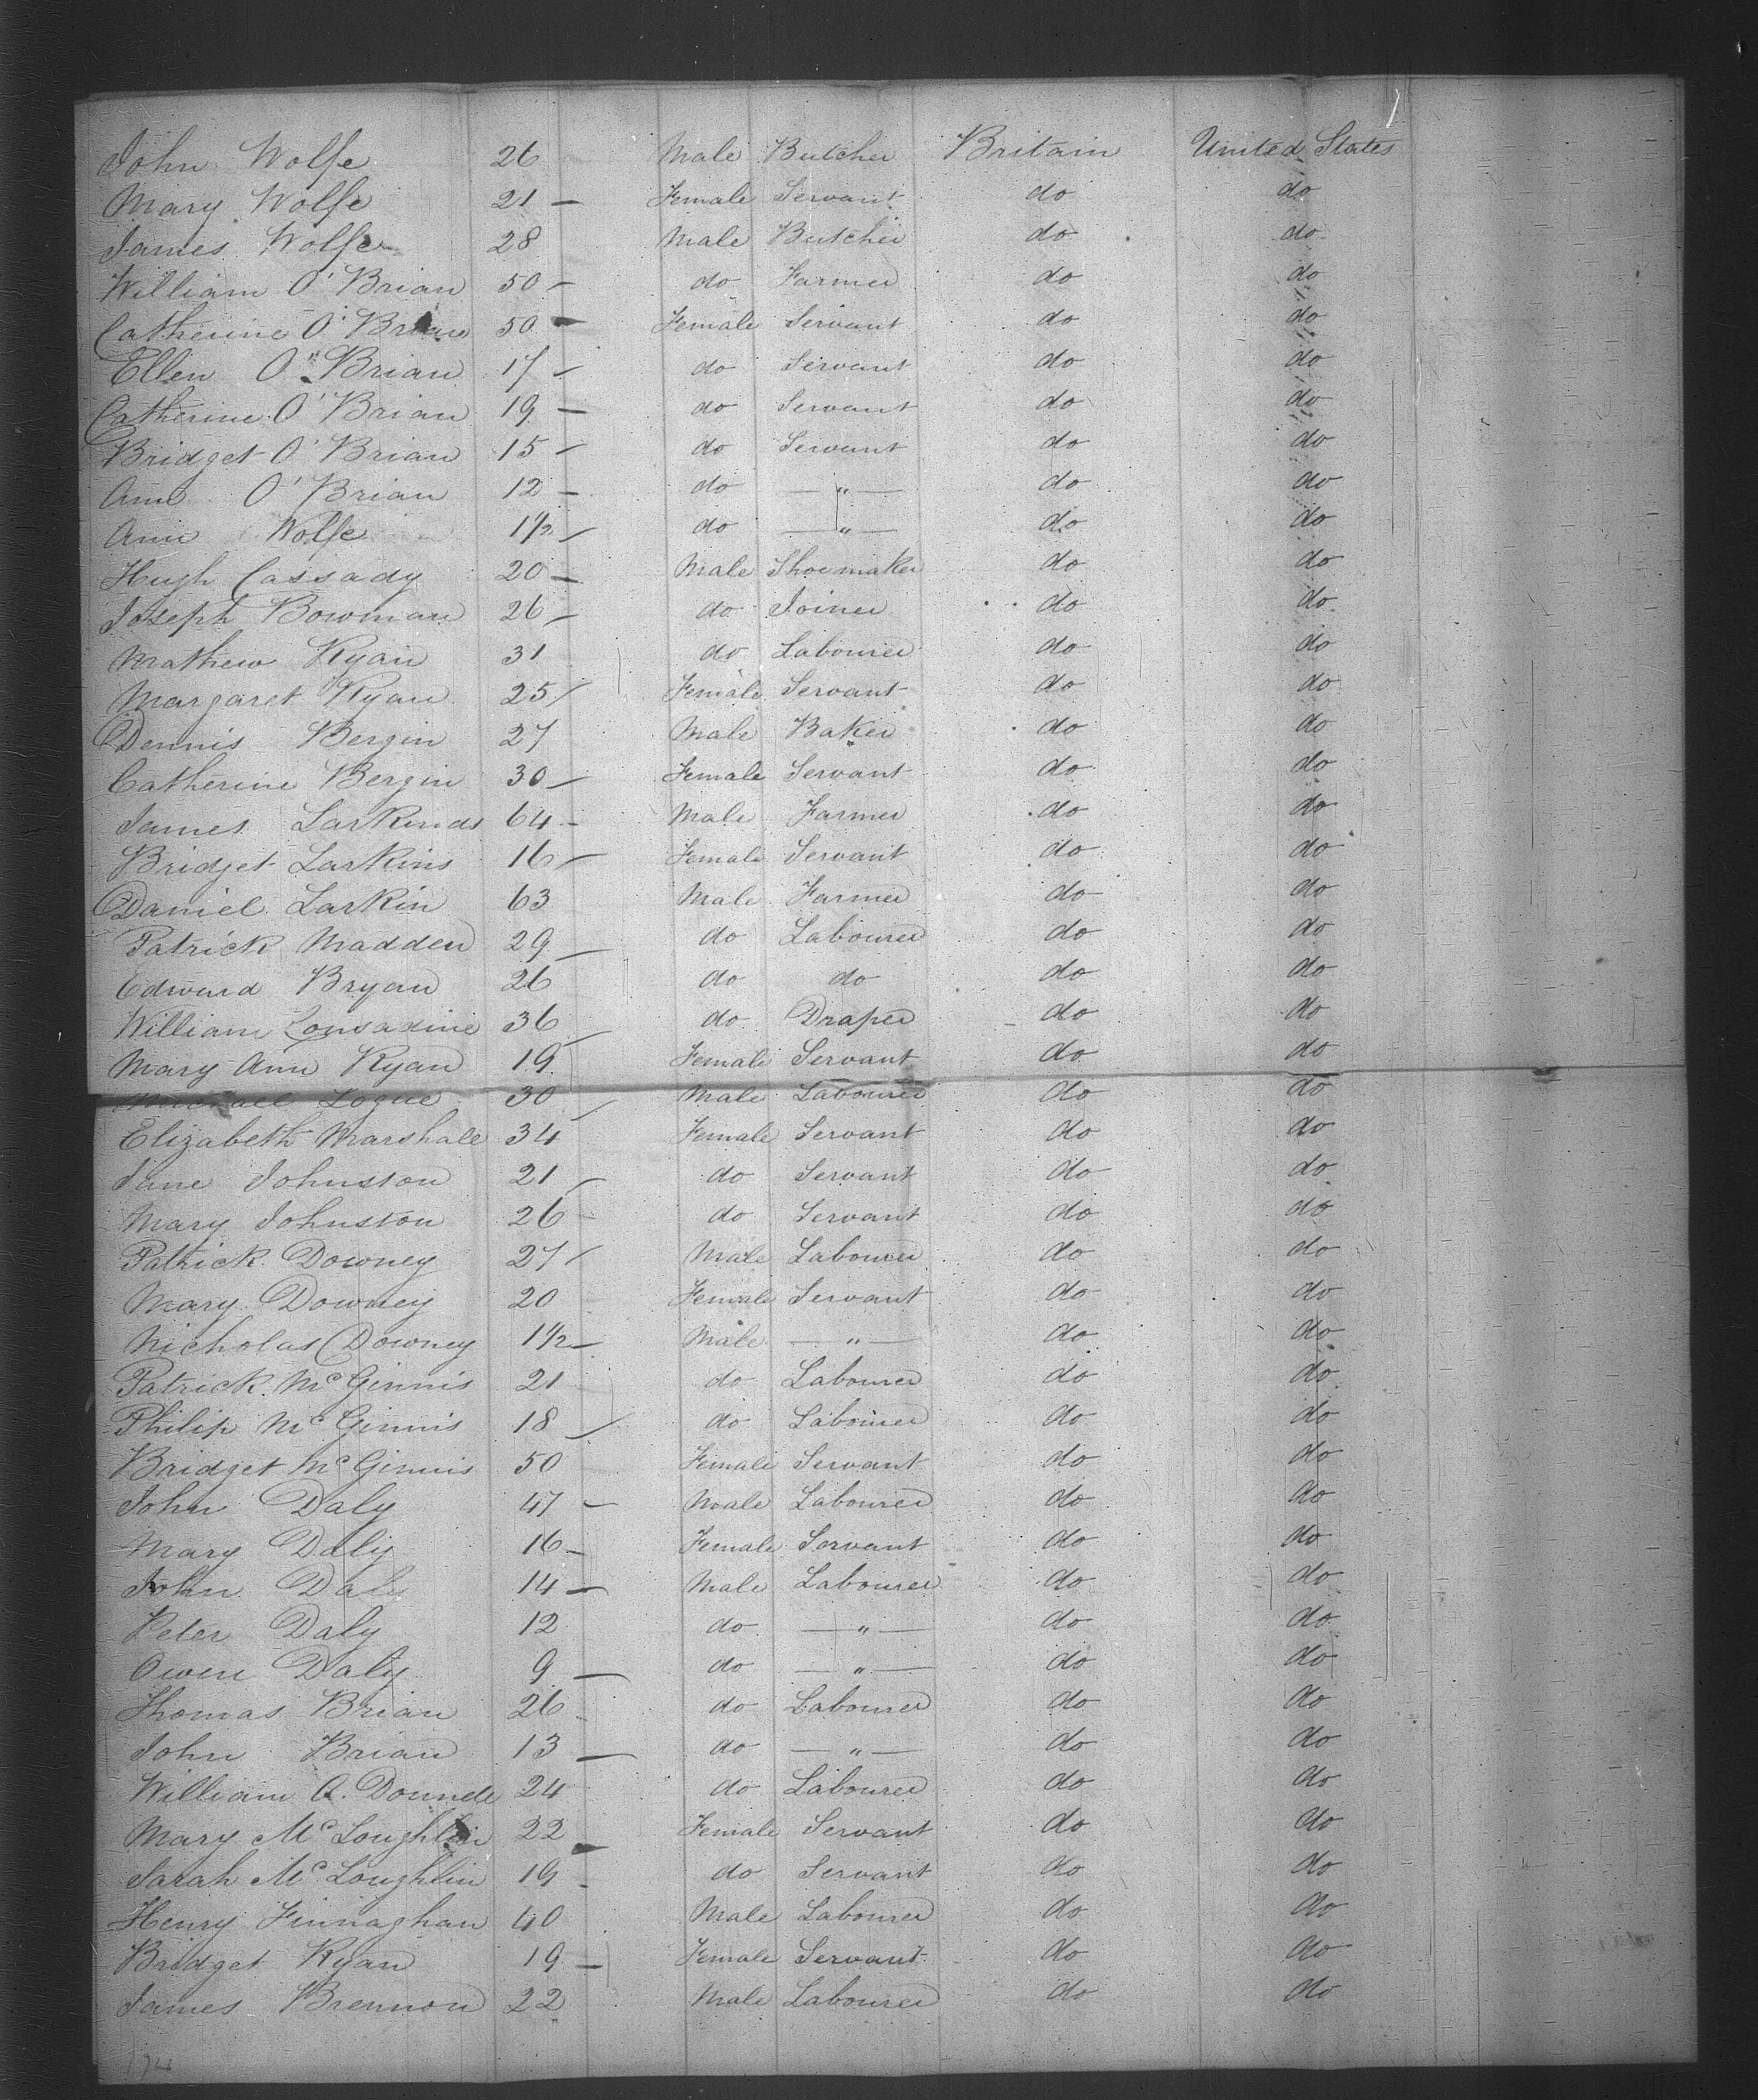 John Wolfe 26 Male Butcher Britain United States
Mary Wolfe 21 — Female Servant do do
James Wolfe 28 Male Butcher do do
William O'Brian 50 — do Farmer do do
Catherine O'Brian 50 — Female Servant do do
Ellen O'Brian 17 — do Servant do do
Catherine O'Brian 19 — do Servant do do
Bridget O'Brian 15 — do Servant do do
Ann O'Brian 12 — do — " — do do
Ann Wolfe 1½ — do — " — do do
Hugh Cassady 20 — Male Shoemaker do do
Joseph Bowman 26 — do Joiner do do
Mathew Ryan 31 do Labourer do do
Margaret Ryan 25 / Female Servant do do
Dennis Bergin 27 Male Baker do do
Catherine Bergin 30 — Female Servant do do
James Larkinds 64 — Male Farmer do do
Bridget Larkins 16 — Female Servant do do
Daniel Larkin 63 Male Farmer do do
Patrick Madden 29 — do Labourer do do
Edward Bryan 26 do do do do
William 36 — do Draper do do
Mary Ann Ryan 19 Female Servant do do
Michael Logue 30 — Male Labourer do do
Elizabeth Marshall 34 Female Servant do do
Jane Johnston 21 — do Servant do do
Mary Johnston 26 — do Servant do do
Patrick Downey 27 / Male Labourer do do
Mary Downey 20 Female Servant do do
Nicholas Downey 1½ — Male — " — do do
Patrick McGinnis 21 do Labourer do do
Philip McGinnis 18 — do Labourer do do
Bridget McGinnis 50 Female Servant do do
John Daly 47 — Male Labourer do do
Mary Daly 16 — Female Servant do do
John Daly 14 — Male Labourer do do
Peter Daly 12 do — " — do do
Owen Daly 9 — do — " — do do
Thomas Brian 26 do Labourer do do
John Brian 13 — do — " — do do
William O. Donnell 24 do Labourer do do
Mary McLoughlin 22 — Female Servant do do
Sarah McLoughlin 19 — do Servant do do
Henry Finnaghan 40 Male Labourer do do
Bridget Ryan 19 — Female Servant do do
James Brennon 22 Male Labourer do do